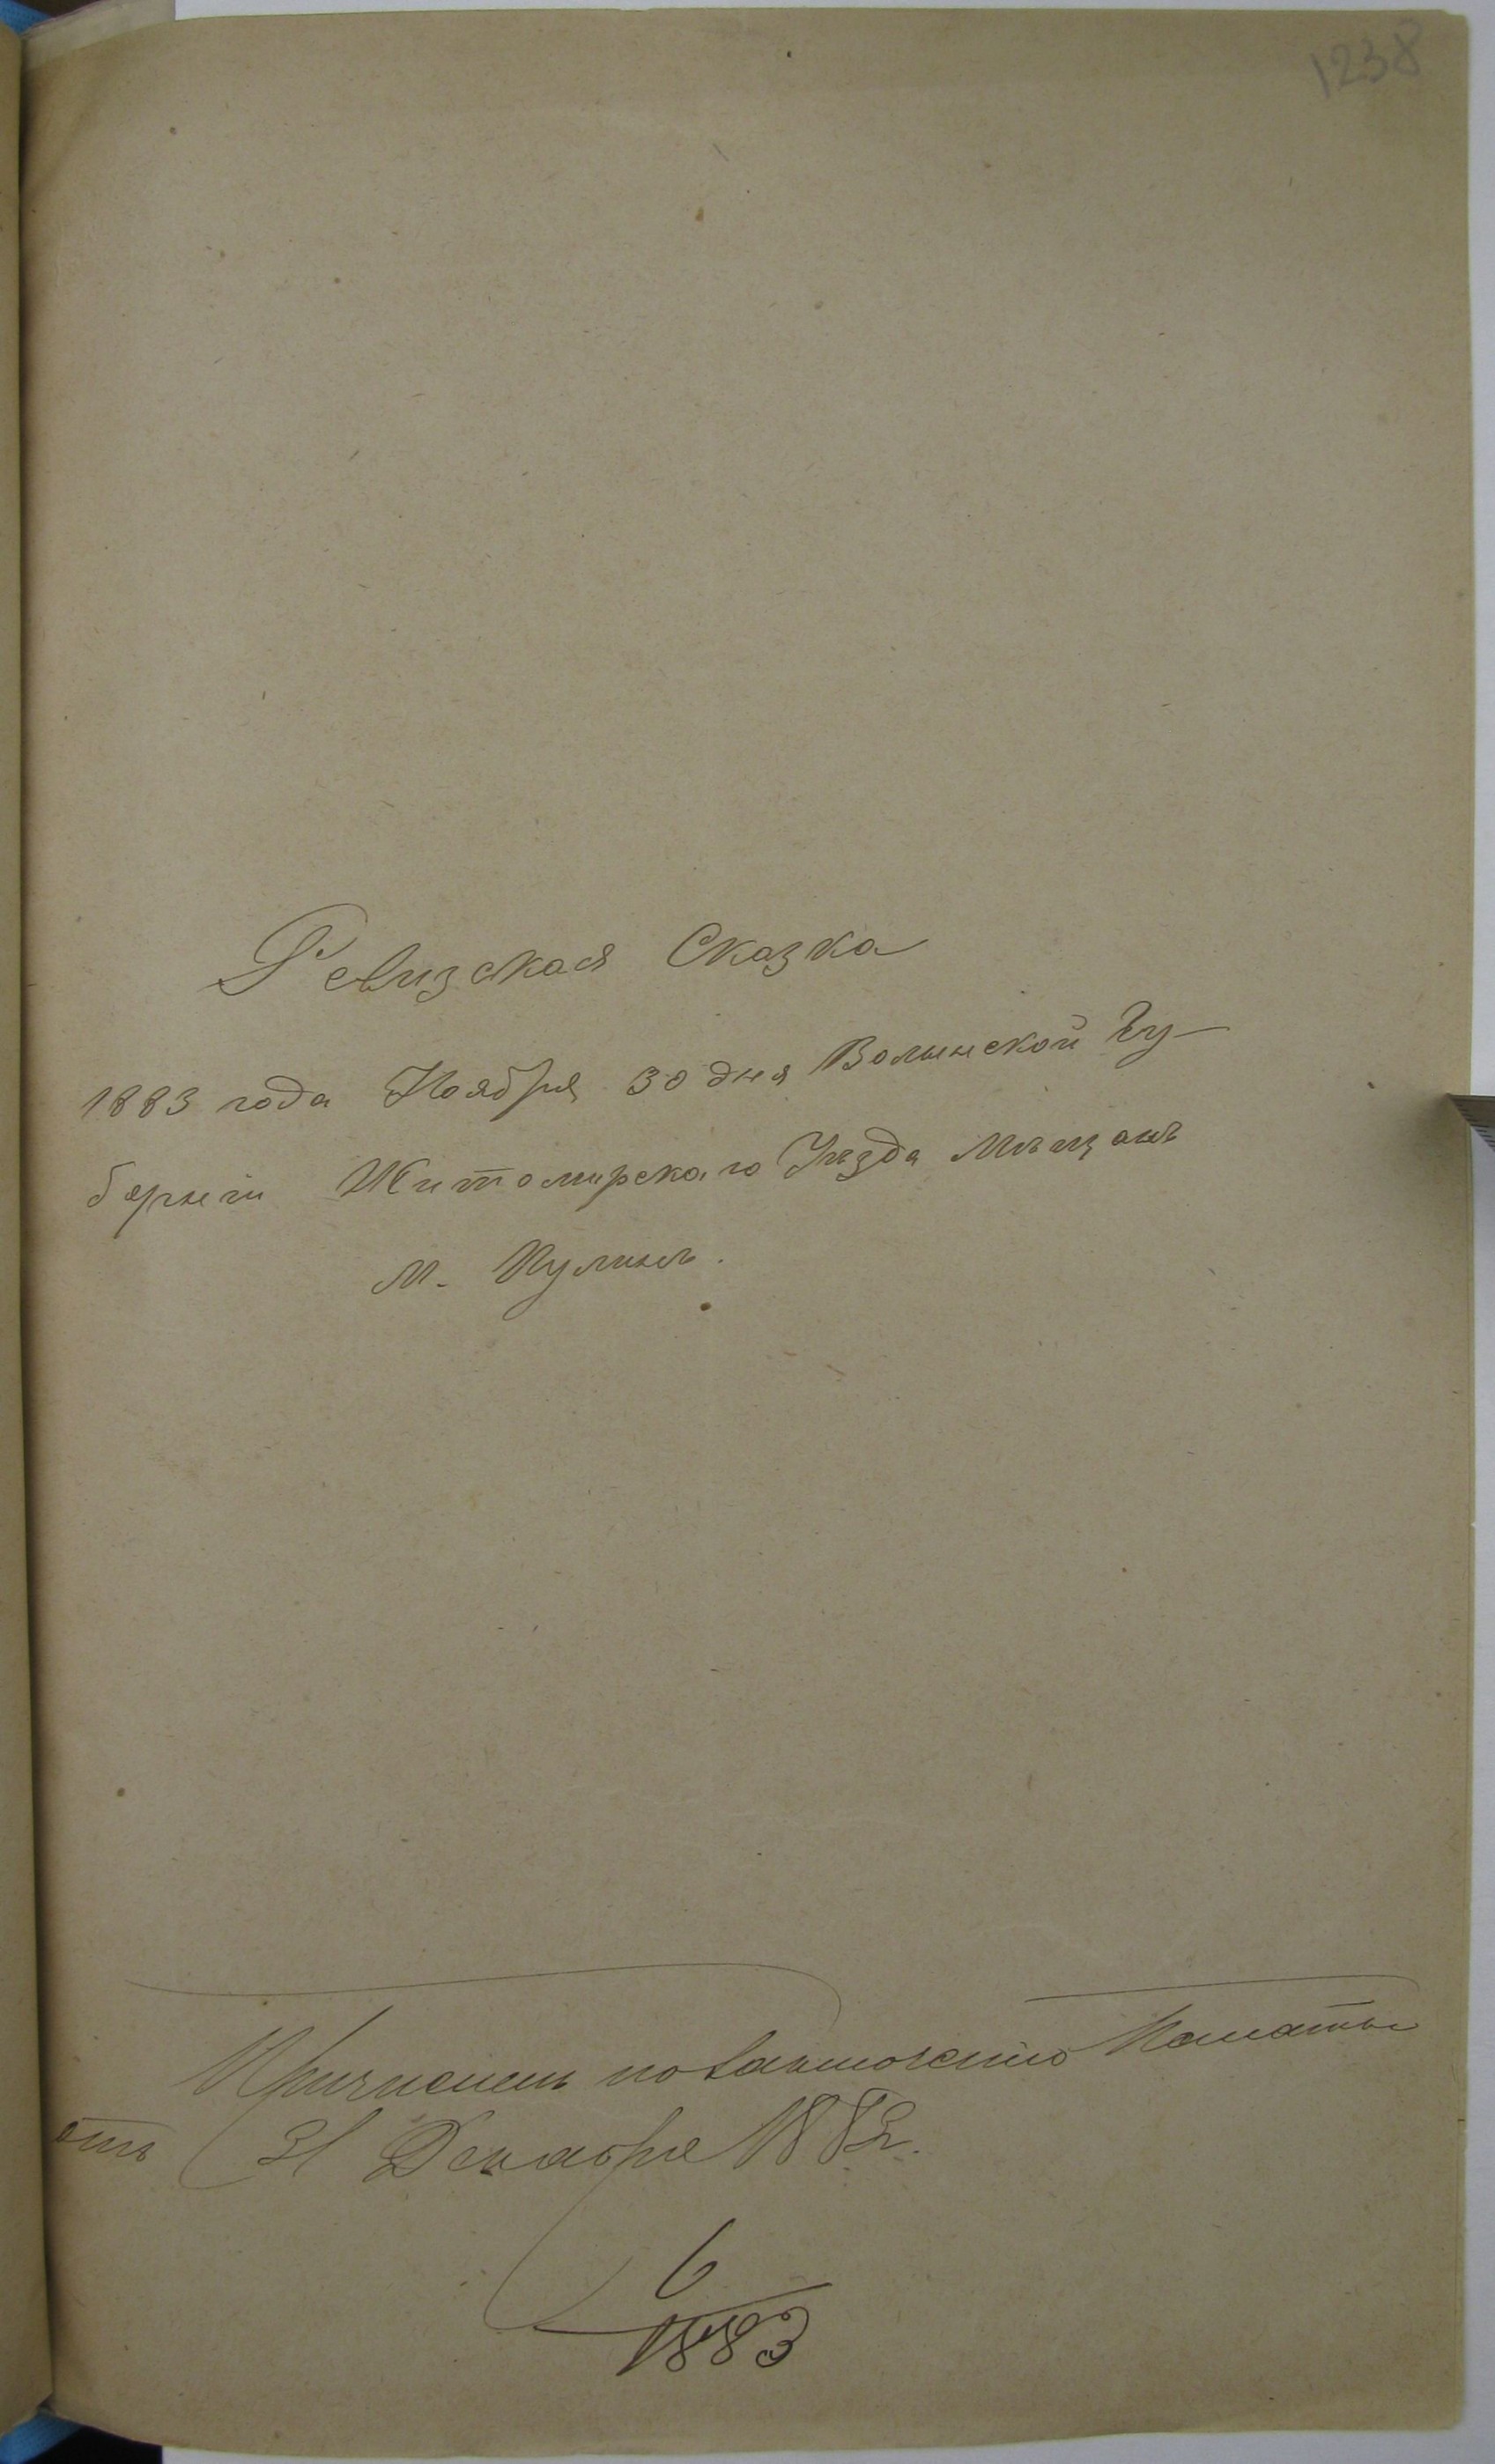 1238
Ревизская Сказка
1883 года Ноября 30 дня Волынской Гу-
берніи Житомирскаго Уѣзда Мѣщанъ
М. Пулинъ.
Причисленъ по заключенію Палаты
отъ 31 Декабря 1882.
6
1883